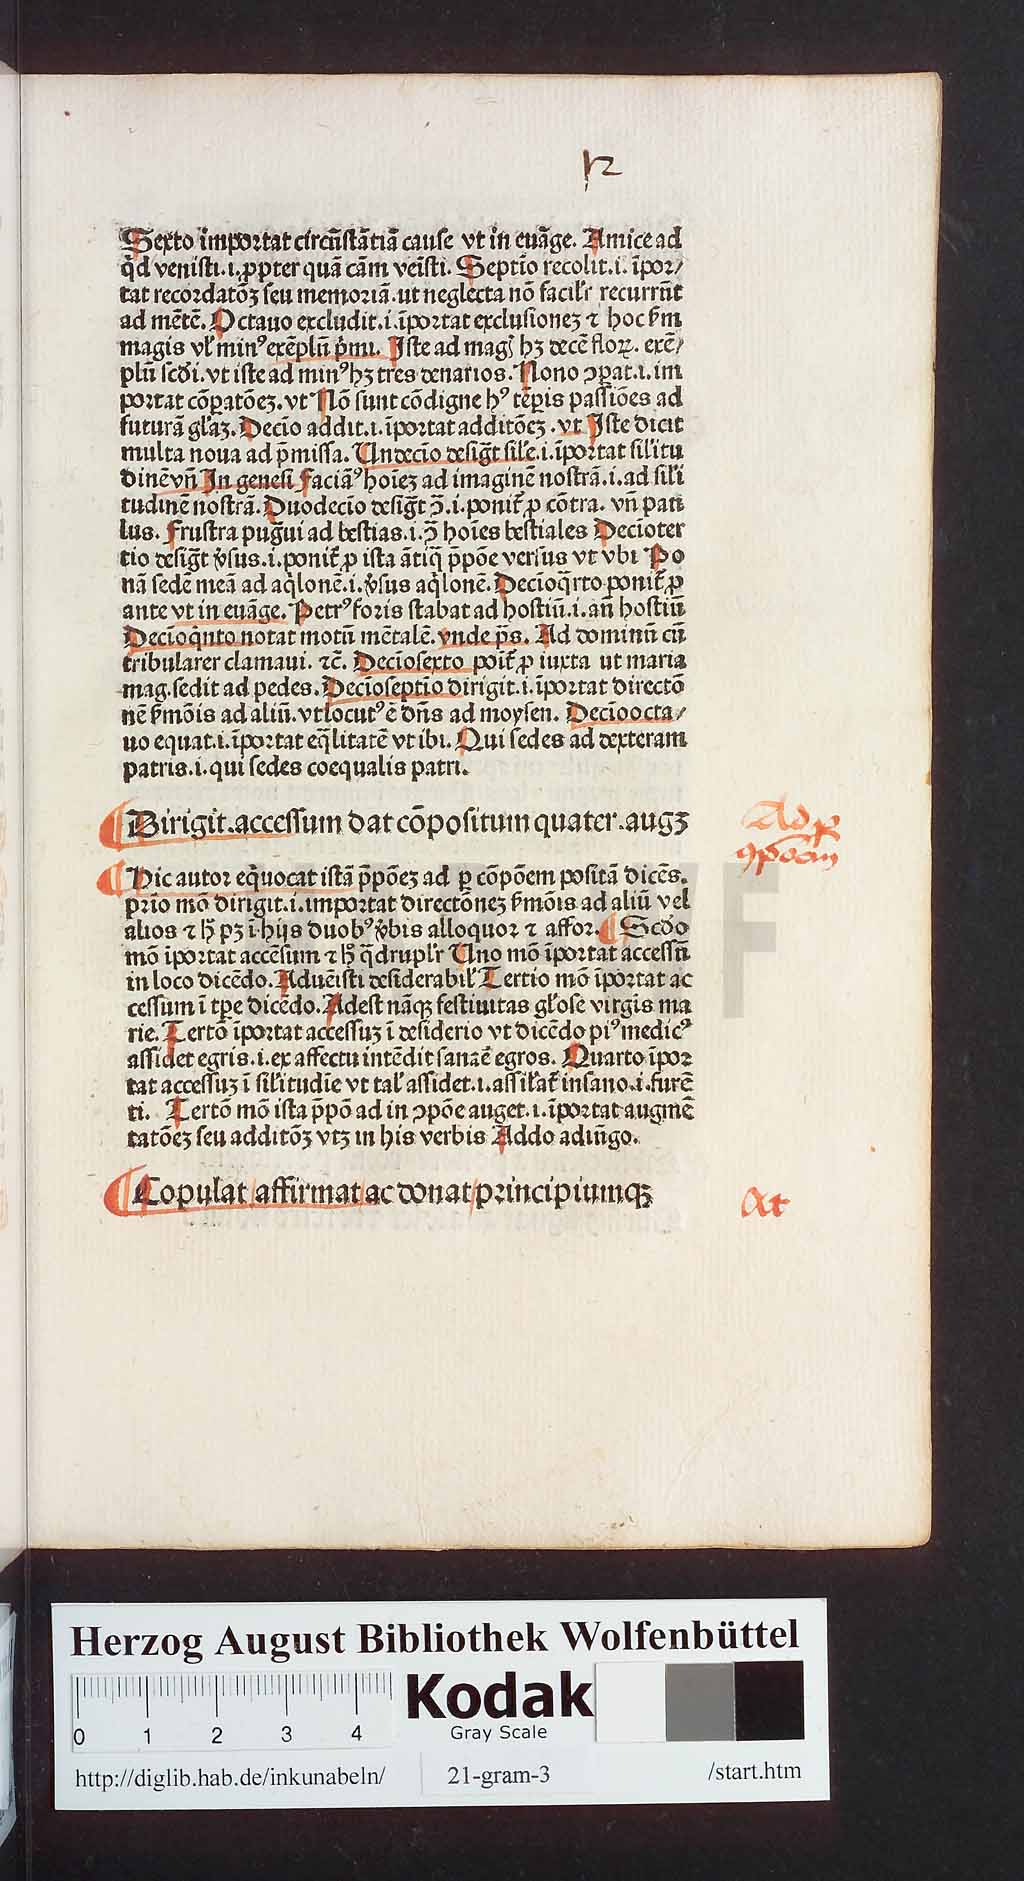 12
Sexto importat circūstātiā cause vt in euāge. Amice ad
qd venisti.i.ppter quā cām veīsti. Septīo recolit.i. īpor/
tat recordatōꝫ seu memoriā.ut neglecta nō facilr recurrūt
ad mētē. Octauo excludit.i.īportat exclusionez ⁊ hoc ẜm
magis vl minꝰ exēplū pmi. Iste ad magꝭ hꝫ decē floꝝ. exē/
plū scdi.vt iste ad minꝰ hꝫ tres denarios. Nono ꝯꝑat.i.im
portat cōꝑatōeꝫ.vt Nō sunt cōdigne hꝰ tēꝑis passiōes ad
futurā glaꝫ. Decio addit.i.īportat additōeꝫ.vt Iste dicit
multa noua ad pmissa. Undecīo desigt sile.i.īportat silitu
dinē vn̄ In genesi Faciāꝰ hoīeꝫ ad imaginē nostrā.i.ad sili
tudinē nostrā. Duodecīo desigt ꝯ̄.i.ponit̄ ꝓ cōtra. vn̄ pau
lus. Frustra pugui ad bestias.i.ꝯ̄ hoīes bestiales Decīoter
tio desigt ꝟsus.i.ponit̄ ꝓ ista ātiq̄ p̄pōe versus vt vbi Po
nā sedē meā ad aqlonē.i.ꝟsus aqlonē. Decīoq̄rto ponit̄ ꝓ
ante vt in euāge. Petrꝰ foris stabat ad hostiū.i.an̄ hostiū
Decīoqnto notat motū mētalē. vnde ps. Ad dominū cū
tribularer clamaui. ⁊c̄. Decīosexto poit̄ ꝓ iuxta ut maria
mag.sedit ad pedes. Decīoseptīo dirigit.i.īportat directō
nē ẜmōis ad aliū. vt locutꝰ ē dn̄s ad moysen. Decīoocta/
uo equat.i.īportat eq̄litatē vt ibi. Qui sedes ad dexteram
patris.i.qui sedes coequalis patri.
Dirigit.accessum dat cōpositum quater.augꝫ
Ad ꝑ
ꝯpōem
Hic autor eqͥuocat istā p̄pōeꝫ ad ꝑ cōpōem positā dicēs.
prīo mō dirigit.i.importat directōneꝫ ẜmōis ad aliū vel
alios ⁊ hͦ pꝫ ī hijs duobꝰ ꝟbis alloquor ⁊ affor. Scdo
mō īportat accēsum ⁊ hͦ q̄druplr Uno mō īportat accessū
in loco dicēdo. Adueisti desiderabil Tertio mō īportat ac
cessum ī tꝑe dicēdo. Adest nāqꝫ festiuitas gl'ose virgīs ma
rie. Tertō īportat accessuꝫ ī desiderio vt dicēdo piꝰ medicꝰ
assidet egris.i.ex affectu intēdit sanare egros. Quarto īpor
tat accessuꝫ ī silitudīe vt tal assidet.i.assilat̄ insano.i.furē
ti. Tertō mō ista p̄pō ad in ꝯpōe auget.i.īportat augmē
tatōeꝫ seu additōꝫ vtꝫ in his verbis Addo adiūgo.
Copulat affirmat ac donat principiumqꝫ
At
Herzog August Bibliothek Wolfenbüttel
0 1 2 3 4
Kodak
Gray Scale
http://diglib.hab.de/inkunabeln/ 21-gram-3 /start.htm